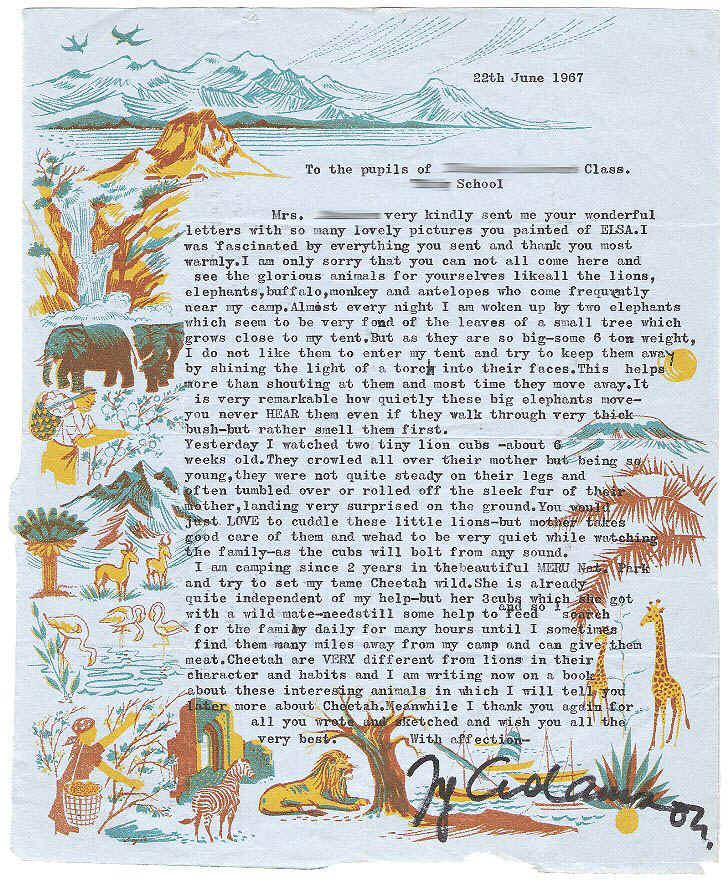 22th June 1967
To the pupils of Class.
School
Mrs. very kindly sent me your wonderful
letters with so many lovely pictures you painted of ELSA.I
was fascinated by everything you sent and thank you most
warmly.I am only sorry that you can not all come here and
see the glorious animals for yourselves likeall the lions,
elephants,buffalo,monkey and antelopes who come frequvntly
near my camp.Almost every night I am woken up by two elephants
which seem to be very fond of the leaves of a small tree which
grows close to my tent.But as they are so big-some 6 ton weight,
I do not like them to enter my tent and try to keep them away
by shining the light of a torch into their faces.This helps
more than shouting at them and most time they move away.It
is very remarkable how quietly these big elephants move-
you never HEAR them even if they walk through very thick
bush-but rather smell them first.
Yesterday I watched two tiny lion cubs -about 6
weeks old.They crowled all over their mother but being so
young,they were not quite steady on their legs and
often tumbled over or rolled off the sleek fur of their
mother,landing very surprised on the ground.You would
just LOVE to cuddle these little lions-but mother takes
good care of them and wehad to be very quiet while watching
the family-as the cubs will bolt from any sound.
I am camping since 2 years in thebeautiful MERU Nat. Park
and try to set my tame Cheetah wild.She is already
quite independent of my help-but her 3cubs which she got
with a wild mate-needstill some help to feed and so I search
for the family daily for many hours until I sometimes
find them many miles away from my camp and can give them
meat.Cheetah are VERY different from lions in their
character and habits and I am writing now on a book
about these interesing animals in which I will tell you
later more about Cheetah.Meanwhile I thank you again for
all you wrote and sketched and wish you all the
very best. With affection-
Jy Adamson.